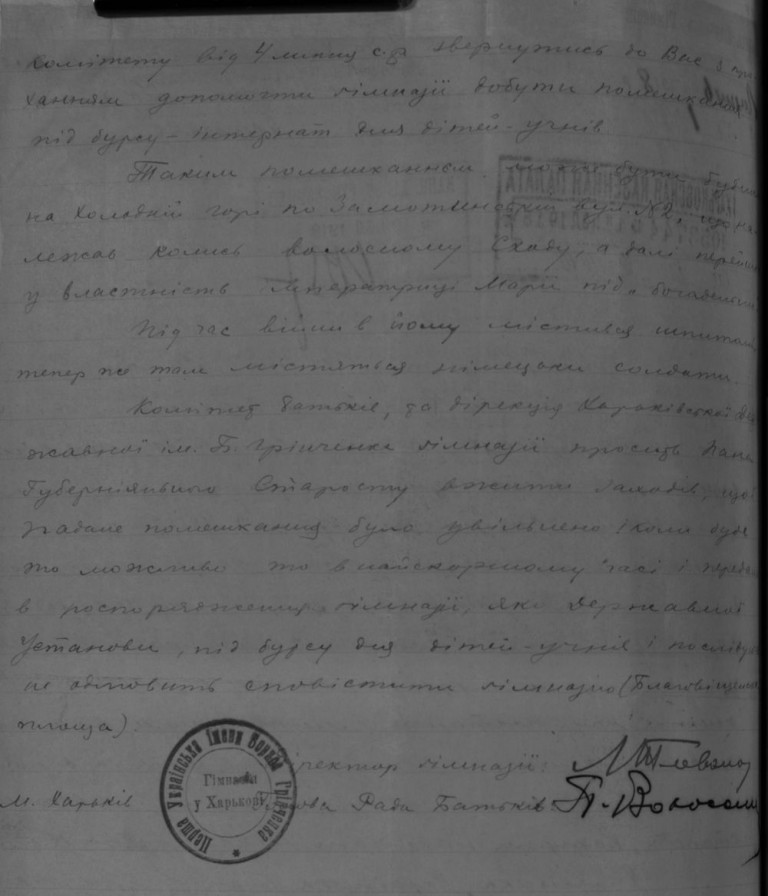 Комітету від 4 липня с.р звернутись до Вас з про
ханням допомогти гімназії добути помешкання
під бурсу – інтернат для дітей-учнів
Таким помешканнєм може бути будинок
на Холодній горі по вул. №2, що на
лежав колись волосному Сходу, а далі перейшов
у власність Імператриці Марії під
Під час війни в йому містився шпиталь
тепер же там містяться німецьки солдати.
Комітет батьків, та дірекція Харьківської Дер
жавної ім. Б Грінченка гімназії просить Пана
Губерніяльного Старосту вжити заходів, щоб
згадане помешкання було увільнено і коли буде
то можливо то в найскоршому часі і
в роспорядження гімназії, яко Державної
Установи, під бурсу для дітей-учнів і
не одмовить сповістити гімназію (Благовіщенська
площа)
Директор гімназії:
м. Харьків Голова Ради Батьків П.
Перша Українська імени Бориса Грінченка
Гімназія
у Харькові